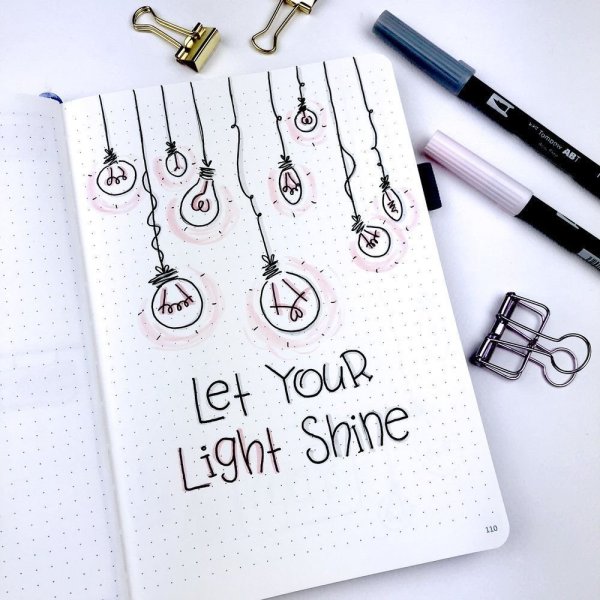 Tombow ABT
LET YOUR
Light Shine
110